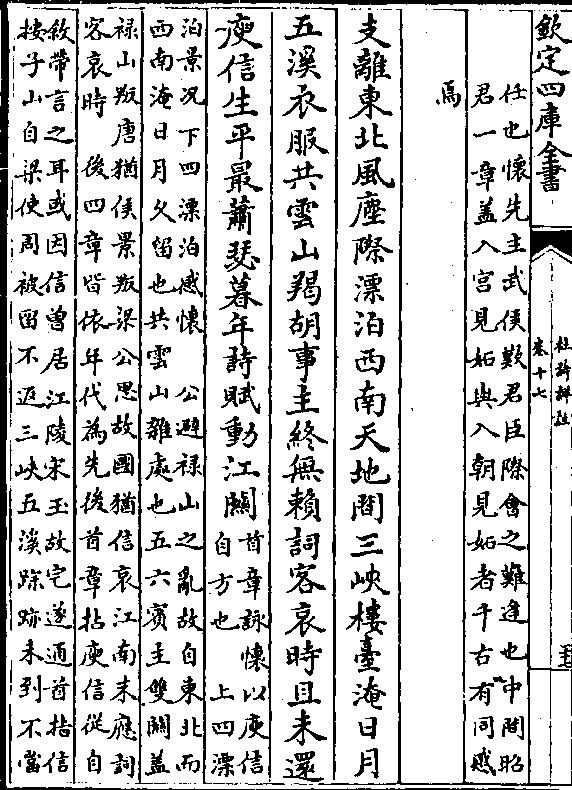 欽定四庫全書
杜詩詳註
卷十七
任也懷先主武侯歎君臣際會之難逢也中間昭
君一章蓋入宮見妬與入朝見妬者千古有同感
焉
支離東北風塵際漂泊西南天地間三峽樓臺淹日月
五溪衣服共雲山羯胡事主終無賴詞客哀時且未還
庾信生平最蕭瑟暮年詩賦動江關
首章詠懷以庾信
自方也 上四漂
泊景况下四漂泊感懷 公避禄山之亂故自東北而
西南淹日月久留也共雲山雜處也五六賓主雙關蓋
禄山叛唐猶侯景叛梁公思故國猶信哀江南末應詞
客哀時 後四章皆依年代為先後首章拈庾信從自
敘帶言之耳或因信曾居江陵宋玉故宅遂通首指信
按子山自梁使周被留不返三峽五溪踪跡未到不當